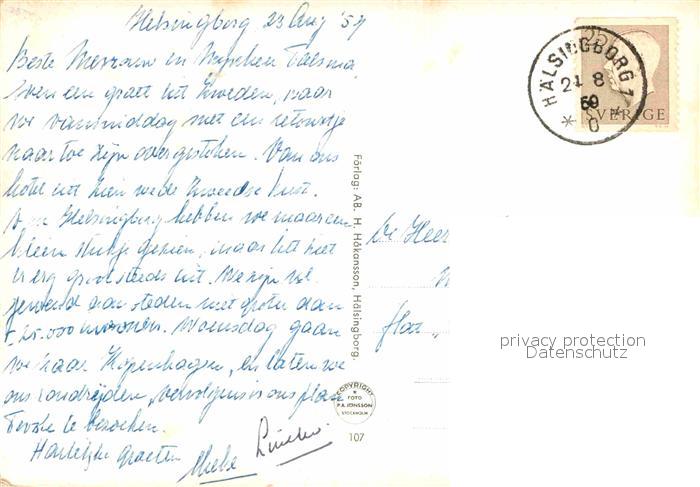 Helsingborg 23 Aug '59
Beste Mevrouw en Mijnheer Talsma
Even een groet uit Zweden, waar
we vanmiddag met een retourtje
naar toe zijn overgestoken. Van ons
hotel uit zien we de Zweedse kust.
Van Helsingborg hebben we maar een
klein stukje gezien, maar het ziet
er erg groot steeds uit. We zijn wel
gewend aan steden met groter dan
25.000 inwoners. Woensdag gaan
we naar Kopenhagen, en laten we
ons rondrijden, vervolgens is ons plan
te bezoeken.
Hartelijke groeten
HÄLSINGBORG 1
24 8
59
* 0 *
SVERIGE
25
Förlag: AB. H. Håkansson, Hälsingborg.
De Heer
flat
privacy protection
Datenschutz
COPYRIGHT
FOTO
P.A. JONSSON
STOCKHOLM
107